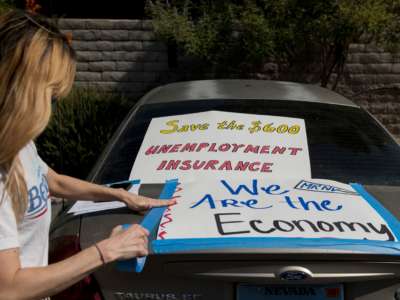 Save the $600
UNEMPLOYMENT
INSURANCE
We MRND
ARE the
Economy
Be
Ford
TAURUS
NEVADA